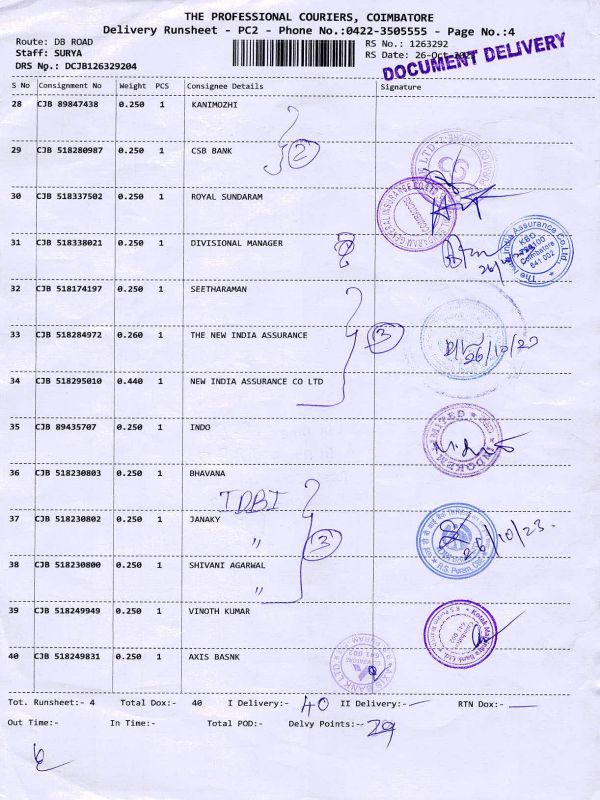 THE PROFESSIONAL COURIERS, COIMBATORE
Delivery Runsheet - PC2 - Phone No.:0422-3505555 - Page No.:4
Route: DB ROAD
RS No.: 1263292
Staff: SURYA
RS Date: 26-Oct-
DOCUMENT DELIVERY
DRS No.: DCJB126329204
S No Consignment No Weight PCS Consignee Details Signature
28 CJB 89847438 0.250 1 KANIMOZHI
29 CJB 518280987 0.250 1 CSB BANK
2
30 CJB 518337502 0.250 1 ROYAL SUNDARAM
31 CJB 518338021 0.250 1 DIVISIONAL MANAGER
The New India Assurance Co.Ltd.
Coimbatore
641 002
32 CJB 518174197 0.250 1 SEETHARAMAN
33 CJB 518284972 0.260 1 THE NEW INDIA ASSURANCE
3
26/10/23
34 CJB 518295010 0.440 1 NEW INDIA ASSURANCE CO LTD
35 CJB 89435707 0.250 1 INDO
36 CJB 518230803 0.250 1 BHAVANA
IDBI
37 CJB 518230802 0.250 1 JANAKY
"
3
26/10/23.
R.S. Puram, CBE
38 CJB 518230800 0.250 1 SHIVANI AGARWAL
"
39 CJB 518249949 0.250 1 VINOTH KUMAR
Kotak Mahindra Bank Ltd.
40 CJB 518249831 0.250 1 AXIS BASNK
AXIS BANK LTD
Tot. Runsheet:- 4 Total Dox:- 40 I Delivery:- 40 II Delivery:- — RTN Dox:- —
Out Time:- In Time:- Total POD:- Delvy Points:- 29